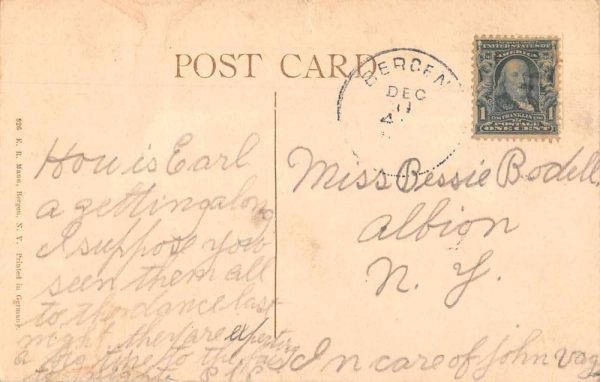 POST CARD
BERGEN
DEC
UNITED STATES OF
AMERICA
1 FRANKLIN 1
POSTAGE
ONE CENT
826 E. R. Mann, Bergen, N. Y. Printed in Germany
How is Earl
a getting along
I suppose you
seen them all
to the dance last
night. they are expecting
a big time to the
Miss Bessie Bodell
Albion
N. Y.
In care of John